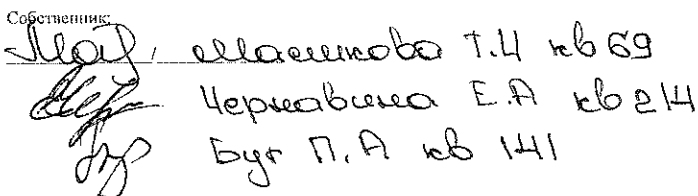 Собственник:
Машкова Т.И кв 69
Чернавина Е.А кв 214
Бут П.А кв 141